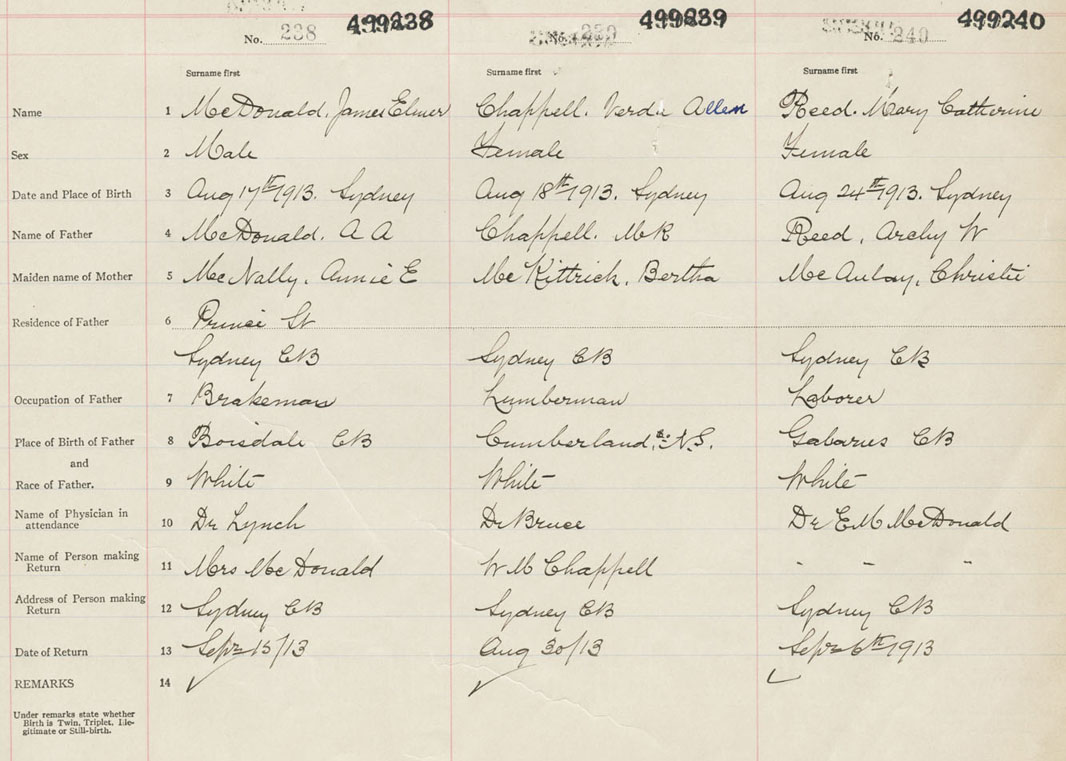 499238 499239 499240
No. 238 No. 239 No. 240
Surname first Surname first Surname first
Name 1 McDonald, James Elmer Chappell. Verda Allen Reed. Mary Catherine
Sex 2 Male Female Female
Date and Place of Birth 3 Aug 17th 1913. Sydney Aug 18th 1913. Sydney Aug 24th 1913. Sydney
Name of Father 4 McDonald. A A Chappell. M R Reed, Archy W
Maiden name of Mother 5 McNally, Annie E McKittrick, Bertha McAulay, Christie
Residence of Father 6 Prince St
Sydney CB Sydney CB Sydney CB
Occupation of Father 7 Brakeman Lumberman Laborer
Place of Birth of Father 8 Boisdale CB Cumberland N.S. Gabarus CB
and
Race of Father. 9 White White White
Name of Physician in
attendance 10 Dr Lynch Dr Bruce Dr E M McDonald
Name of Person making
Return 11 Mrs McDonald W M Chappell " " "
Address of Person making
Return 12 Sydney CB Sydney CB Sydney CB
Date of Return 13 Sept 15/13 Aug 30/13 Sept 6th 1913
REMARKS 14
Under remarks state whether
Birth is Twin, Triplet, Ille-
gitimate or Still-birth.